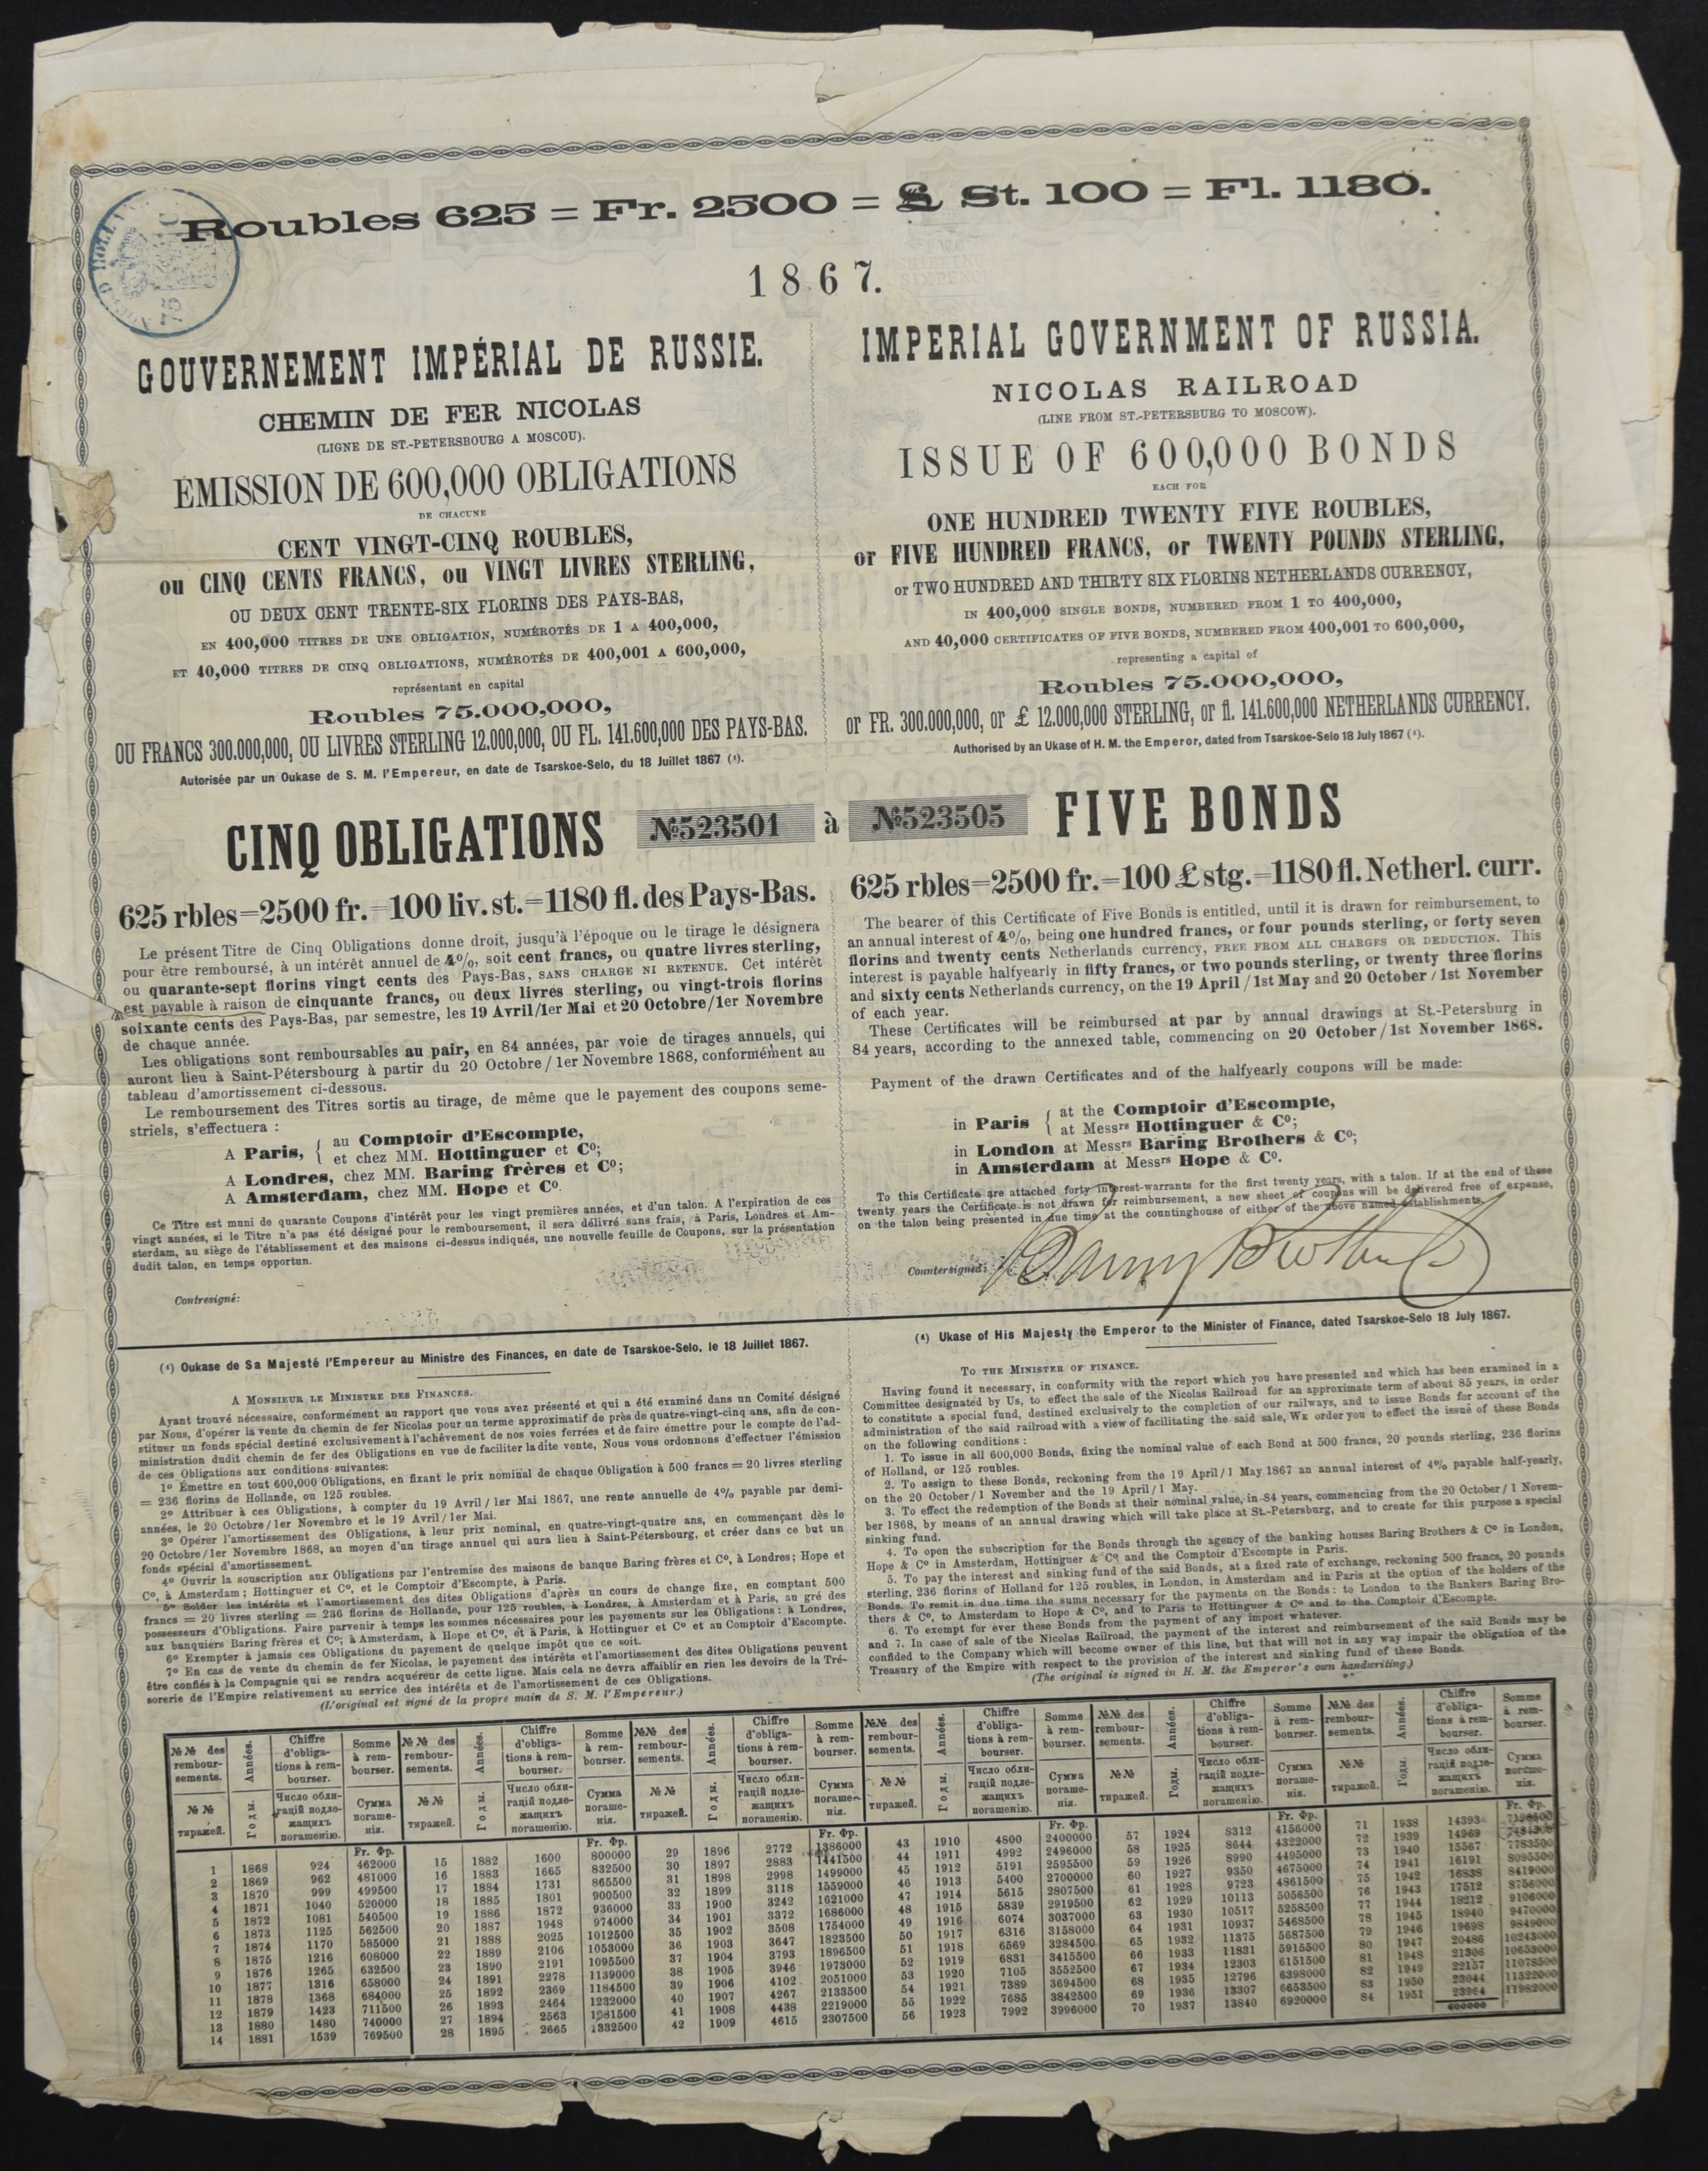 Roubles 625 = Fr. 2500 = £ St. 100 = Fl. 1180.
1867.
GOUVERNEMENT IMPÉRIAL DE RUSSIE.
CHEMIN DE FER NICOLAS
(LIGNE DE ST.-PETERSBOURG A MOSCOU).
ÉMISSION DE 600,000 OBLIGATIONS
DE CHACUNE
CENT VINGT-CINQ ROUBLES,
ou CINQ CENTS FRANCS, ou VINGT LIVRES STERLING,
OU DEUX CENT TRENTE-SIX FLORINS DES PAYS-BAS,
EN 400,000 TITRES DE UNE OBLIGATION, NUMÉROTÉS DE 1 A 400,000,
ET 40,000 TITRES DE CINQ OBLIGATIONS, NUMÉROTÉS DE 400,001 A 600,000,
représentant en capital
Roubles 75.000,000,
OU FRANCS 300.000,000, OU LIVRES STERLING 12.000,000, OU FL. 141.600,000 DES PAYS-BAS.
Autorisée par un Oukase de S. M. l'Empereur, en date de Tsarskoe-Selo, du 18 Juillet 1867 (¹).
IMPERIAL GOVERNMENT OF RUSSIA.
NICOLAS RAILROAD
(LINE FROM ST.-PETERSBURG TO MOSCOW).
ISSUE OF 600,000 BONDS
EACH FOR
ONE HUNDRED TWENTY FIVE ROUBLES,
or FIVE HUNDRED FRANCS, or TWENTY POUNDS STERLING,
or TWO HUNDRED AND THIRTY SIX FLORINS NETHERLANDS CURRENCY,
IN 400,000 SINGLE BONDS, NUMBERED FROM 1 TO 400,000,
AND 40,000 CERTIFICATES OF FIVE BONDS, NUMBERED FROM 400,001 TO 600,000,
representing a capital of
Roubles 75.000,000,
or FR. 300.000,000, or £ 12.000,000 STERLING, or fl. 141.600,000 NETHERLANDS CURRENCY.
Authorised by an Ukase of H. M. the Emperor, dated from Tsarskoe-Selo 18 July 1867 (¹).
CINQ OBLIGATIONS №523501 à №523505 FIVE BONDS
625 rbles=2500 fr.=100 liv. st.=1180 fl. des Pays-Bas.
Le présent Titre de Cinq Obligations donne droit, jusqu'à l'époque ou le tirage le désignera
pour être remboursé, à un intérêt annuel de 4%, soit cent francs, ou quatre livres sterling,
ou quarante-sept florins vingt cents des Pays-Bas, SANS CHARGE NI RETENUE. Cet intérêt
est payable à raison de cinquante francs, ou deux livres sterling, ou vingt-trois florins
soixante cents des Pays-Bas, par semestre, les 19 Avril/1er Mai et 20 Octobre/1er Novembre
de chaque année.
Les obligations sont remboursables au pair, en 84 années, par voie de tirages annuels, qui
auront lieu à Saint-Pétersbourg à partir du 20 Octobre/1er Novembre 1868, conformément au
tableau d'amortissement ci-dessous.
Le remboursement des Titres sortis au tirage, de même que le payement des coupons seme-
striels, s'effectuera :
A Paris, { au Comptoir d'Escompte,
et chez MM. Hottinguer et Cº;
A Londres, chez MM. Baring frères et Cº;
A Amsterdam, chez MM. Hope et Cº.
Ce Titre est muni de quarante Coupons d'intérêt pour les vingt premières années, et d'un talon. A l'expiration de ces
vingt années, si le Titre n'a pas été désigné pour le remboursement, il sera délivré sans frais, à Paris, Londres et Am-
sterdam, au siège de l'établissement et des maisons ci-dessus indiqués, une nouvelle feuille de Coupons, sur la présentation
dudit talon, en temps opportun.
Contresigné:
625 rbles=2500 fr.=100 £ stg.=1180 fl. Netherl. curr.
The bearer of this Certificate of Five Bonds is entitled, until it is drawn for reimbursement, to
an annual interest of 4%, being one hundred francs, or four pounds sterling, or forty seven
florins and twenty cents Netherlands currency, FREE FROM ALL CHARGES OR DEDUCTION. This
interest is payable halfyearly in fifty francs, or two pounds sterling, or twenty three florins
and sixty cents Netherlands currency, on the 19 April/1st May and 20 October/1st November
of each year.
These Certificates will be reimbursed at par by annual drawings at St.-Petersburg in
84 years, according to the annexed table, commencing on 20 October/1st November 1868.
Payment of the drawn Certificates and of the halfyearly coupons will be made:
in Paris { at the Comptoir d'Escompte,
at Messrs Hottinguer & Cº;
in London at Messrs Baring Brothers & Cº;
in Amsterdam at Messrs Hope & Cº.
To this Certificate are attached forty interest-warrants for the first twenty years, with a talon. If at the end of these
twenty years the Certificate is not drawn for reimbursement, a new sheet of coupons will be delivered free of expense,
on the talon being presented in due time at the countinghouse of either of the above named establishments.
Countersigned: Baring Brothers
(¹) Oukase de Sa Majesté l'Empereur au Ministre des Finances, en date de Tsarskoe-Selo, le 18 Juillet 1867.
A MONSIEUR LE MINISTRE DES FINANCES.
Ayant trouvé nécessaire, conformément au rapport que vous avez présenté et qui a été examiné dans un Comité désigné
par Nous, d'opérer la vente du chemin de fer Nicolas pour un terme approximatif de près de quatre-vingt-cinq ans, afin de con-
stituer un fonds spécial destiné exclusivement à l'achèvement de nos voies ferrées et de faire émettre pour le compte de l'ad-
ministration dudit chemin de fer des Obligations en vue de faciliter ladite vente, Nous vous ordonnons d'effectuer l'émission
de ces Obligations aux conditions suivantes:
1º Émettre en tout 600,000 Obligations, en fixant le prix nominal de chaque Obligation à 500 francs = 20 livres sterling
= 236 florins de Hollande, ou 125 roubles.
2º Attribuer à ces Obligations, à compter du 19 Avril/1er Mai 1867, une rente annuelle de 4% payable par demi-
années, le 20 Octobre/1er Novembre et le 19 Avril/1er Mai.
3º Opérer l'amortissement des Obligations, à leur prix nominal, en quatre-vingt-quatre ans, en commençant dès le
20 Octobre/1er Novembre 1868, au moyen d'un tirage annuel qui aura lieu à Saint-Pétersbourg, et créer dans ce but un
fonds spécial d'amortissement.
4º Ouvrir la souscription aux Obligations par l'entremise des maisons de banque Baring frères et Cº, à Londres; Hope et
Cº, à Amsterdam; Hottinguer et Cº, et le Comptoir d'Escompte, à Paris.
5º Solder les intérêts et l'amortissement des dites Obligations d'après un cours de change fixe, en comptant 500
francs = 20 livres sterling = 236 florins de Hollande, pour 125 roubles, à Londres, à Amsterdam et à Paris, au gré des
possesseurs d'Obligations. Faire parvenir à temps les sommes nécessaires pour les payements sur les Obligations: à Londres,
aux banquiers Baring frères et Cº; à Amsterdam, à Hope et Cº, et à Paris, à Hottinguer et Cº et au Comptoir d'Escompte.
6º Exempter à jamais ces Obligations du payement de quelque impôt que ce soit.
7º En cas de vente du chemin de fer Nicolas, le payement des intérêts et l'amortissement des dites Obligations peuvent
être confiés à la Compagnie qui se rendra acquéreur de cette ligne. Mais cela ne devra affaiblir en rien les devoirs de la Tré-
sorerie de l'Empire relativement au service des intérêts et de l'amortissement de ces Obligations.
(L'original est signé de la propre main de S. M. l'Empereur.)
(¹) Ukase of His Majesty the Emperor to the Minister of Finance, dated Tsarskoe-Selo 18 July 1867.
TO THE MINISTER OF FINANCE.
Having found it necessary, in conformity with the report which you have presented and which has been examined in a
Committee designated by Us, to effect the sale of the Nicolas Railroad for an approximate term of about 85 years, in order
to constitute a special fund, destined exclusively to the completion of our railways, and to issue Bonds for account of the
administration of the said railroad with a view of facilitating the said sale, WE order you to effect the issue of these Bonds
on the following conditions:
1. To issue in all 600,000 Bonds, fixing the nominal value of each Bond at 500 francs, 20 pounds sterling, 236 florins
of Holland, or 125 roubles.
2. To assign to these Bonds, reckoning from the 19 April/1 May 1867 an annual interest of 4% payable half-yearly,
on the 20 October/1 November and the 19 April/1 May.
3. To effect the redemption of the Bonds at their nominal value, in 84 years, commencing from the 20 October/1 Novem-
ber 1868, by means of an annual drawing which will take place at St.-Petersburg, and to create for this purpose a special
sinking fund.
4. To open the subscription for the Bonds through the agency of the banking houses Baring Brothers & Cº in London,
Hope & Cº in Amsterdam, Hottinguer & Cº and the Comptoir d'Escompte in Paris.
5. To pay the interest and sinking fund of the said Bonds, at a fixed rate of exchange, reckoning 500 francs, 20 pounds
sterling, 236 florins of Holland for 125 roubles, in London, in Amsterdam and in Paris at the option of the holders of the
Bonds. To remit in due time the sums necessary for the payments on the Bonds: to London to the Bankers Baring Bro-
thers & Cº, to Amsterdam to Hope & Cº, and to Paris to Hottinguer & Cº and to the Comptoir d'Escompte.
6. To exempt for ever these Bonds from the payment of any impost whatever.
and 7. In case of sale of the Nicolas Railroad, the payment of the interest and reimbursement of the said Bonds may be
confided to the Company which will become owner of this line, but that will not in any way impair the obligation of the
Treasury of the Empire with respect to the provision of the interest and sinking fund of these Bonds.
(The original is signed in H. M. the Emperor's own handwriting.)
№№ des remboursements. Années. Chiffre d'obligations à rembourser. Somme à rembourser.
№№ тиражей. Годы. Число облигацій подлежащихъ погашенію. Сумма погашенія.
Fr. Фр.
1 1868 924 462000
2 1869 962 481000
3 1870 999 499500
4 1871 1040 520000
5 1872 1081 540500
6 1873 1125 562500
7 1874 1170 585000
8 1875 1216 608000
9 1876 1265 632500
10 1877 1316 658000
11 1878 1368 684000
12 1879 1423 711500
13 1880 1480 740000
14 1881 1539 769500
15 1882 1600 800000
16 1883 1665 832500
17 1884 1731 865500
18 1885 1801 900500
19 1886 1872 936000
20 1887 1948 974000
21 1888 2025 1012500
22 1889 2106 1053000
23 1890 2191 1095500
24 1891 2278 1139000
25 1892 2369 1184500
26 1893 2464 1232000
27 1894 2563 1281500
28 1895 2665 1332500
29 1896 2772 1386000
30 1897 2883 1441500
31 1898 2998 1499000
32 1899 3118 1559000
33 1900 3242 1621000
34 1901 3372 1686000
35 1902 3508 1754000
36 1903 3647 1823500
37 1904 3793 1896500
38 1905 3946 1973000
39 1906 4102 2051000
40 1907 4267 2133500
41 1908 4438 2219000
42 1909 4615 2307500
43 1910 4800 2400000
44 1911 4992 2496000
45 1912 5191 2595500
46 1913 5400 2700000
47 1914 5615 2807500
48 1915 5839 2919500
49 1916 6074 3037000
50 1917 6316 3158000
51 1918 6569 3284500
52 1919 6831 3415500
53 1920 7105 3552500
54 1921 7389 3694500
55 1922 7685 3842500
56 1923 7992 3996000
57 1924 8312 4156000
58 1925 8644 4322000
59 1926 8990 4495000
60 1927 9350 4675000
61 1928 9723 4861500
62 1929 10113 5056500
63 1930 10517 5258500
64 1931 10937 5468500
65 1932 11375 5687500
66 1933 11831 5915500
67 1934 12303 6151500
68 1935 12796 6398000
69 1936 13307 6653500
70 1937 13840 6920000
71 1938 14393 7196500
72 1939 14969 7484500
73 1940 15567 7783500
74 1941 16191 8095500
75 1942 16838 8419000
76 1943 17512 8756000
77 1944 18212 9106000
78 1945 18940 9470000
79 1946 19698 9849000
80 1947 20486 10243000
81 1948 21306 10653000
82 1949 22157 11078500
83 1950 23044 11522000
84 1951 23964 11982000
600000